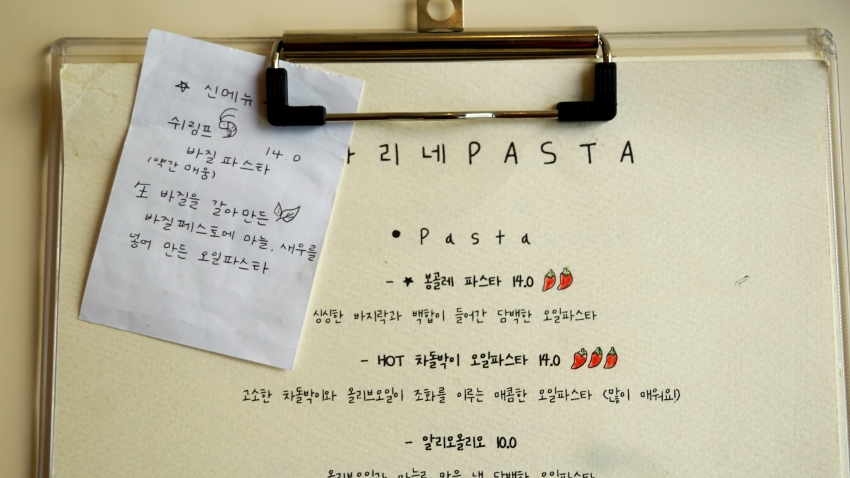 신메뉴
쉬림프
바질 파스타 14.0
(약간 매움)
生 바질을 갈아 만든
바질페스토에 마늘, 새우를
넣어 만든 오일파스타
리네 PASTA
• Pasta
- ★ 봉골레 파스타 14.0
싱싱한 바지락과 백합이 들어간 담백한 오일파스타
- HOT 차돌박이 오일파스타 14.0
고소한 차돌박이와 올리브오일이 조화를 이루는 매콤한 오일파스타 (많이 매워요!)
- 알리오올리오 10.0